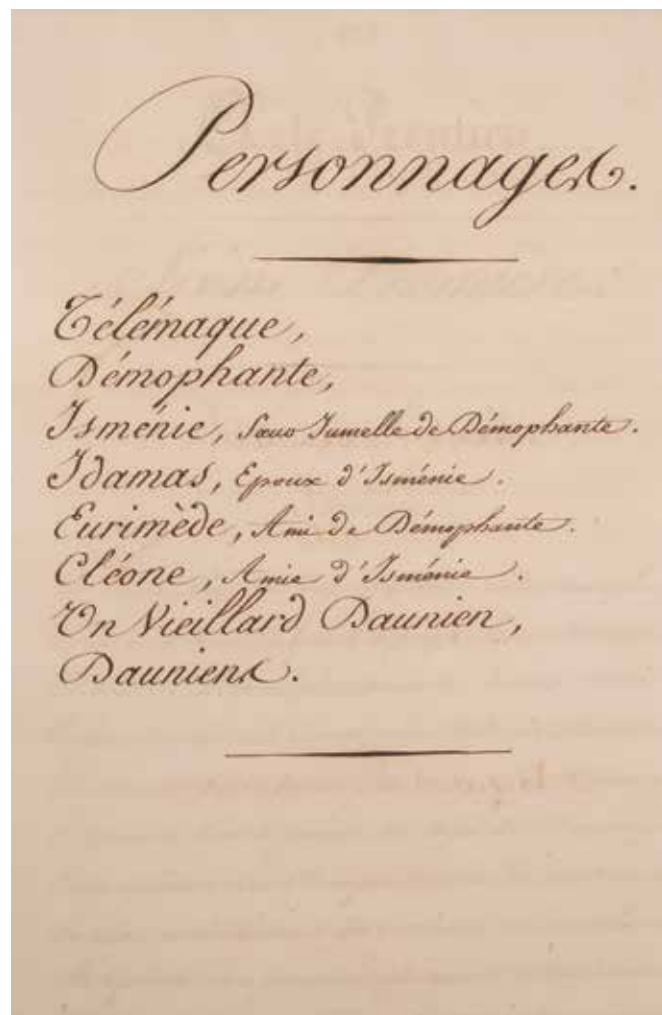 Personnages.
Télémaque,
Démophante,
Isménie, Sœur Jumelle de Démophante.
Idamas, Epoux d'Isménie.
Eurimède, Ami de Démophante.
Cléone, Amie d'Isménie.
Un Vieillard Daunien,
Dauniens.